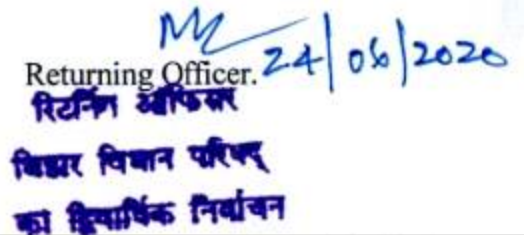 24/06/2020
Returning Officer.
रिटर्निंग ऑफिसर
बिहार विधान परिषद्
का द्विवार्षिक निर्वाचन